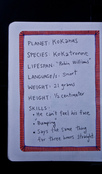 PLANET: KOKANAS
SPECIES: KOKATRANNE
LIFESPAN: "Robin Williams"
LANGUAGE/S: Smart
WEIGHT: 21 grams
HEIGHT: 1/2 centimeter
SKILLS:
• He can't feel his face
• Bumping
• Says the same thing
for three hours straight